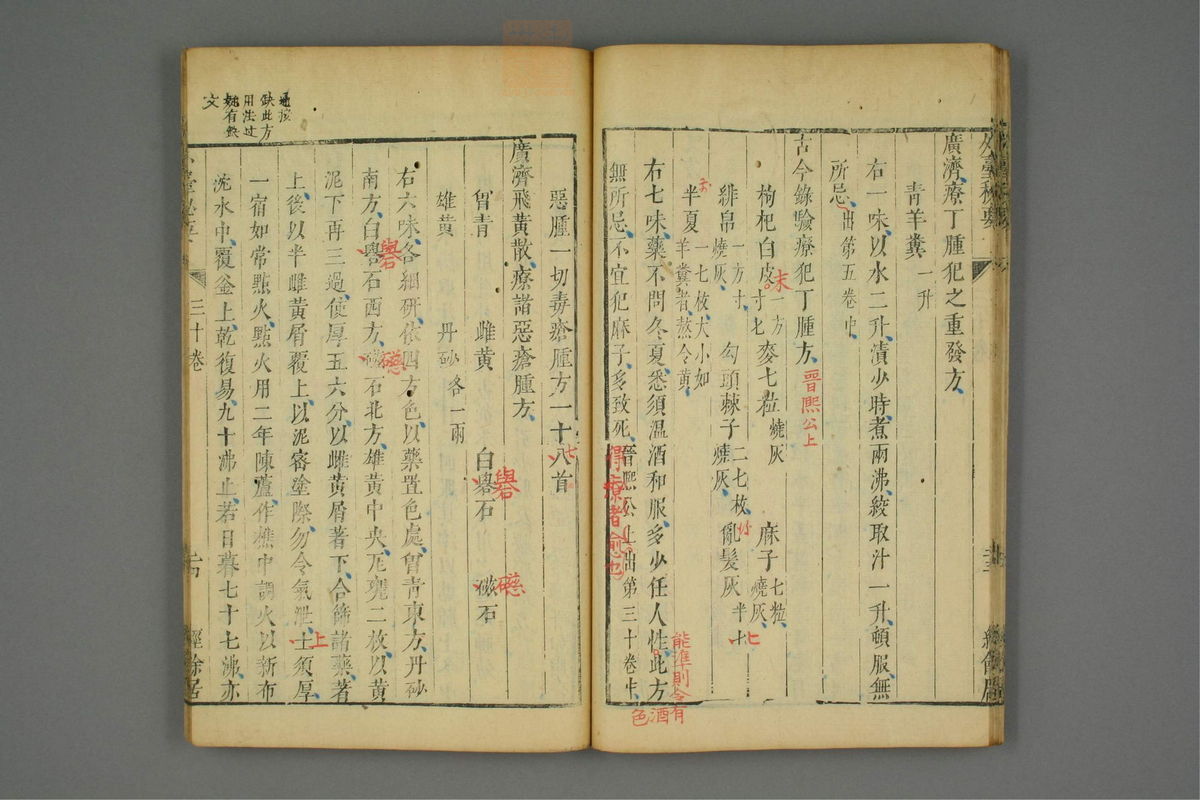 外臺秘要
廣濟療丁腫犯之重發方
青羊糞一升
右一味以水二升漬少時煮兩沸絞取汁一升頓服無
所忌出第五卷中
古今錄驗療犯丁腫方
晉熙公上
枸杞白皮末一方寸七 麥七粒燒灰 麻子七粒燒灰
緋帛一方寸燒灰 勾頭棘子二七枚燒灰 亂髮灰半十
七
半夏一七枚大小如羊糞者熬令黃
右七味藥不問冬夏悉須溫酒和服多少任人性此方
能準則令有
酒色
無所忌不宜犯麻子多致死晉熙公上出第三十卷中
得療者愈也
經餘居
惡腫一切毒瘡腫方一十八首
七
廣濟飛黃散療諸惡瘡腫方
曾青 雌黃 白礜石 磁石
礜
礠
雄黃 丹砂各一兩
右六味各細研依四方色以藥置色處曾青東方丹砂
南方白礜石西方磁石北方雄黃中央瓦甕二枚以黃
礜
礠
泥下再三過使厚五六分以雌黃屑著下合篩諸藥著
上後以半雌黃屑覆上以泥密塗際勿令氣泄土須厚
上
一宿如常點火點火用二年陳蘆作樵中調火以新布
沈水中覆釜上乾復易九十沸止若日暮七十七沸亦
三十卷
經餘居
缺此方
用法
文